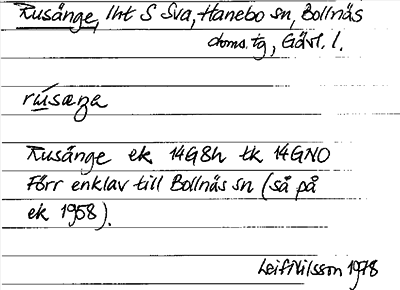 Rusänge, lht S Sva, Hanebo sn, Bollnäs
doms. tg, Gävl. l.
rúsæŋa
Rusänge ek 14G8h tk 14GNO
Förr enklav till Bollnäs sn (så på
ek 1958).
Leif Nilsson 1978